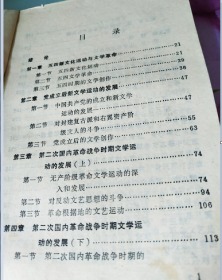 目 录
绪 论
第一章 五四新文化运动与文学革命 21
第一节 五四新文化运动 21
第二节 五四文学革命 31
第三节 五四时期的文学创作 39
第二章 党成立后新文学运动的发展
第一节 中国共产党的成立和新文学
运动的发展
第二节 对封建复古派和右翼资产阶
级文人的斗争
第三节 党成立后的文学创作
第三章 第二次国内革命战争时期文学运
动的发展(上) 74
第一节 无产阶级革命文学运动的深
入和发展 74
第二节 对反动文艺思想的斗争
第三节 革命根据地的文艺运动 94
第四章 第二次国内革命战争时期文学运
动的发展(下) 113
第一节 第二次国内革命战争时期的
1